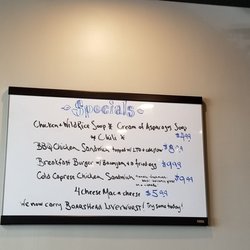 Specials
Chicken & Wild Rice Soup Cream of Asparagus Soup
Chili
BBQ Chicken Sandwich topped w/ LTO & coleslaw $8
Breakfast Burger w/ & fried egg $9.49
Cold Caprese Chicken Sandwich $9.49
4 Cheese Mac n cheese $5
We now carry BOARSHEAD LIVERWURST! Try some today!